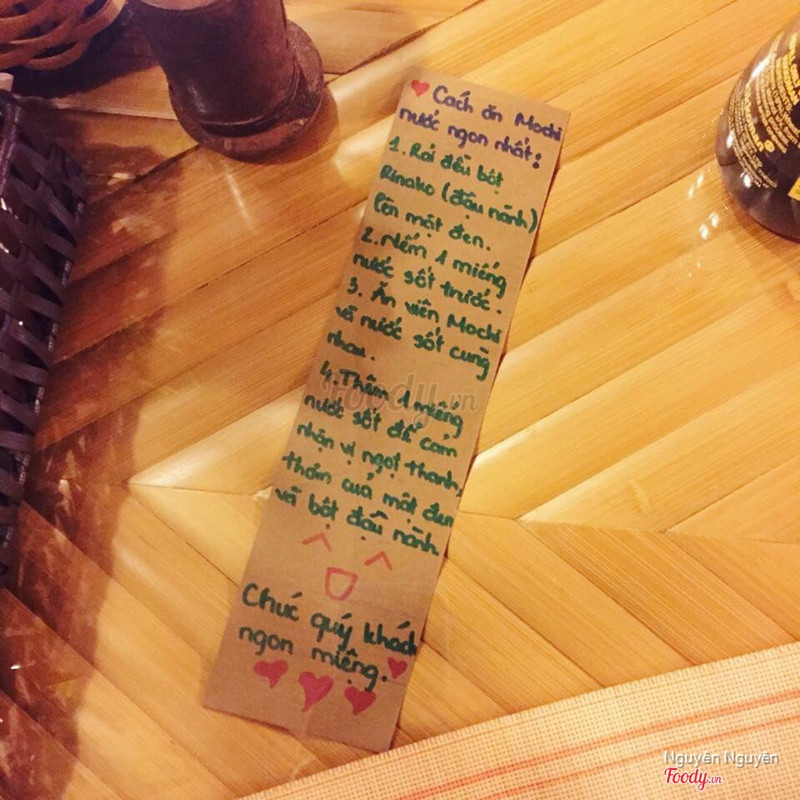 Cách ăn Mochi
nước ngon nhất:
1. Rải đều bột
Kinako (đậu nành)
lên mật đen.
2. Nếm 1 miếng
nước sốt trước.
3. Ăn viên Mochi
và nước sốt cùng
nhau.
4. Thêm 1 miếng
nước sốt để cảm
nhận vị ngọt thanh,
thơm của mật đen
và bột đậu nành.
Chúc quý khách
ngon miệng.
Foody.vn
Nguyên Nguyên
Foody.vn